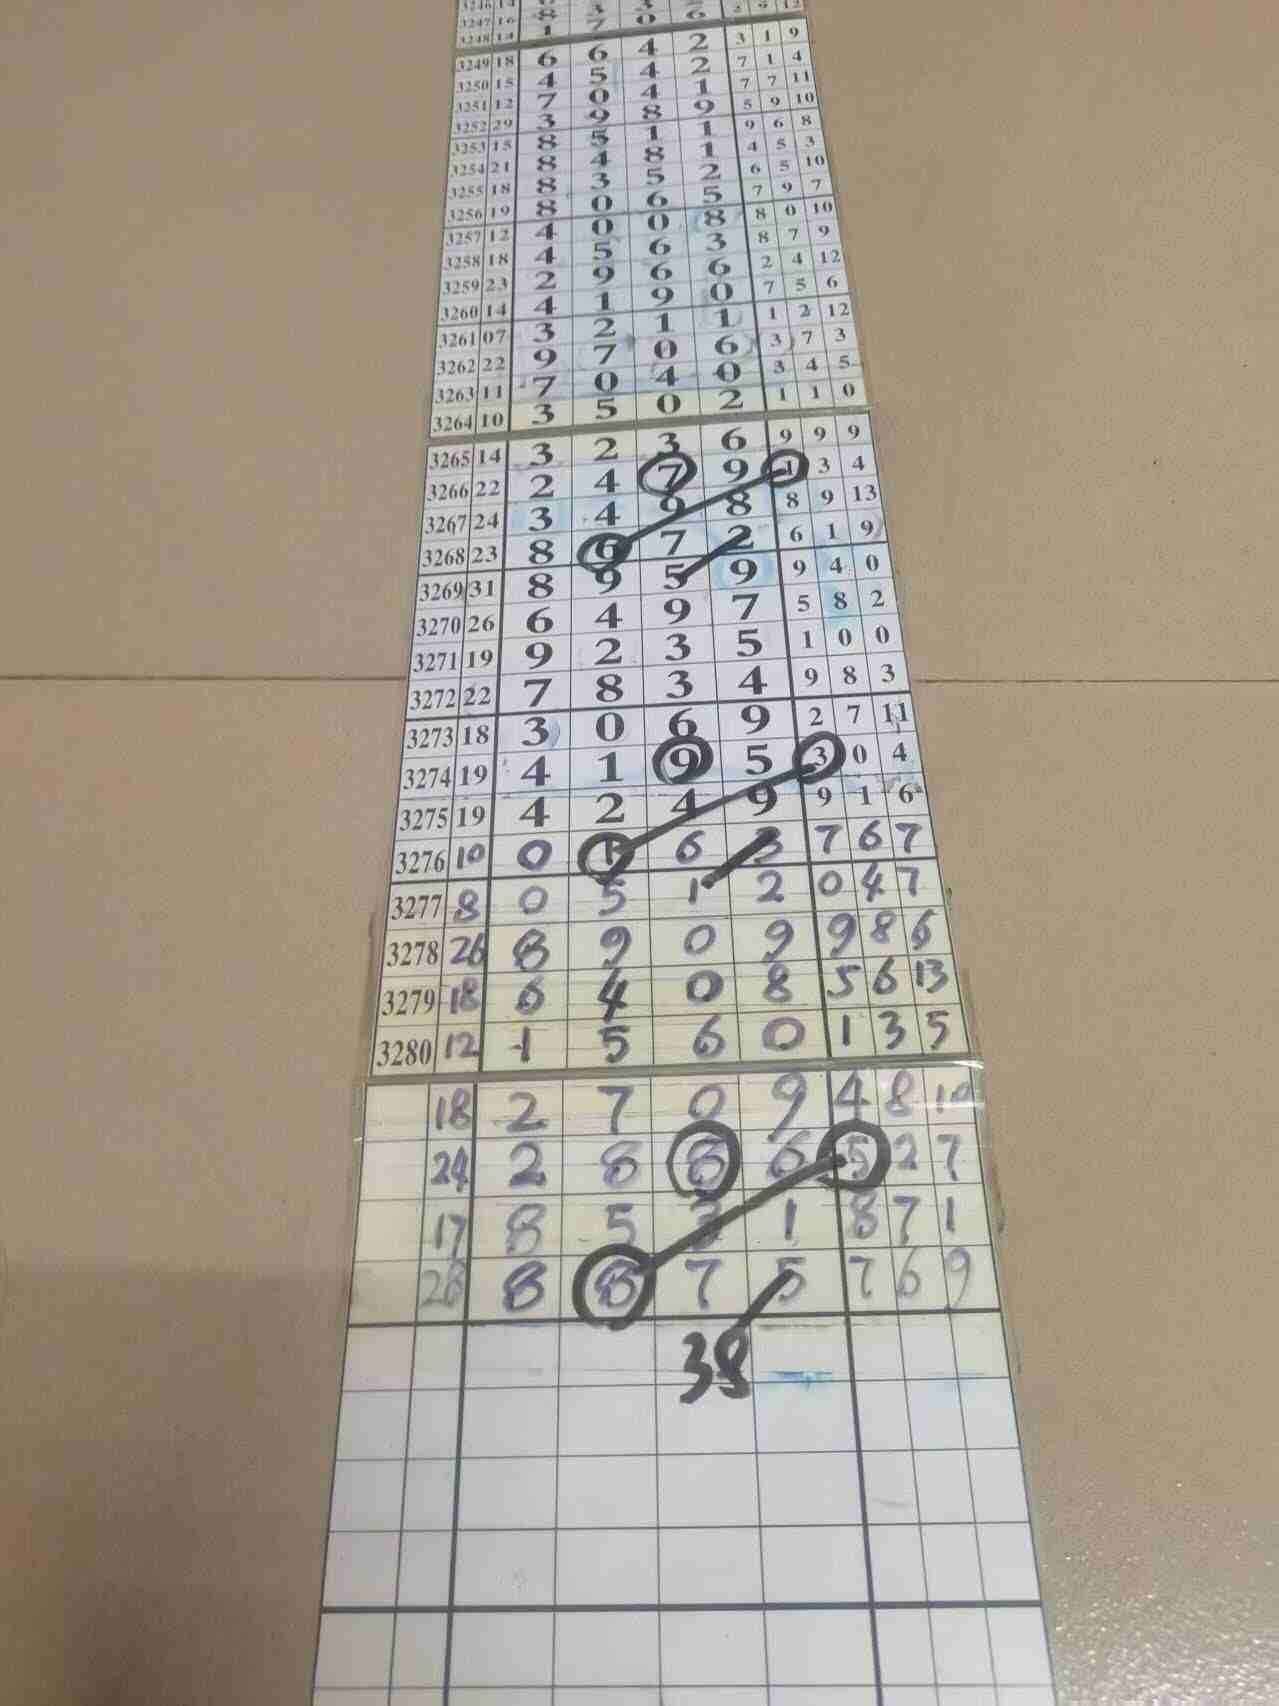 3247 16 8 3 0 6
3248 14 1 7
3249 18 6 6 4 2 3 1 9
3250 15 4 5 4 2 7 1 4
3251 12 7 0 4 1 7 7 11
3252 29 3 9 8 9 5 9 10
3253 15 8 5 1 1 9 6 8
3254 21 8 4 8 1 4 5 3
3255 18 8 3 5 2 6 5 10
3256 19 8 0 6 5 7 9 7
3257 12 4 0 0 8 8 0 10
3258 18 4 5 6 3 8 7 9
3259 23 2 9 6 6 2 4 12
3260 14 4 1 9 0 7 5 6
3261 07 3 2 1 1 1 2 12
3262 22 9 7 0 6 3 7 3
3263 11 7 0 4 0 3 4 5
3264 10 3 5 0 2 1 1 0
3265 14 3 2 3 6 9 9 9
3266 22 2 4 7 9 1 3 4
3267 24 3 4 9 8 8 9 13
3268 23 8 6 7 2 6 1 9
3269 31 8 9 5 9 9 4 0
3270 26 6 4 9 7 5 8 2
3271 19 9 2 3 5 1 0 0
3272 22 7 8 3 4 9 8 3
3273 18 3 0 6 9 2 7 11
3274 19 4 1 9 5 3 0 4
3275 19 4 2 4 9 9 1 6
3276 10 0 1 6 3 7 6 7
3277 8 0 5 1 2 0 4 7
3278 26 8 9 0 9 9 8 6
3279 18 6 4 0 8 5 6 13
3280 12 1 5 6 0 1 3 5
18 2 7 0 9 4 8 10
24 2 8 8 6 5 2 7
17 8 5 3 1 8 7 1
28 8 8 7 5 7 6 9
38